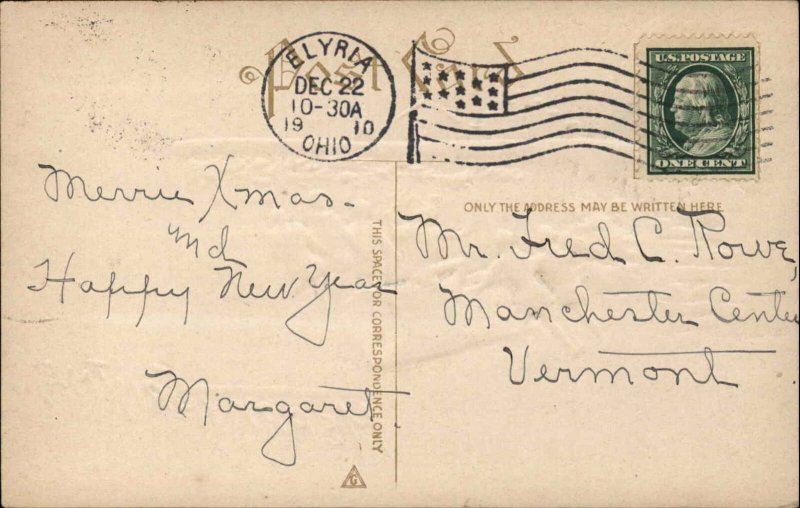 Post Card
ELYRIA
DEC 22
10-30A
19 10
OHIO
U.S. POSTAGE
ONE CENT
ONLY THE ADDRESS MAY BE WRITTEN HERE
THIS SPACE FOR CORRESPONDENCE ONLY
Merrie Xmas-
and
Happy New Year
Margaret.
Mr. Fred C. Rowe,
Manchester Center
Vermont
G